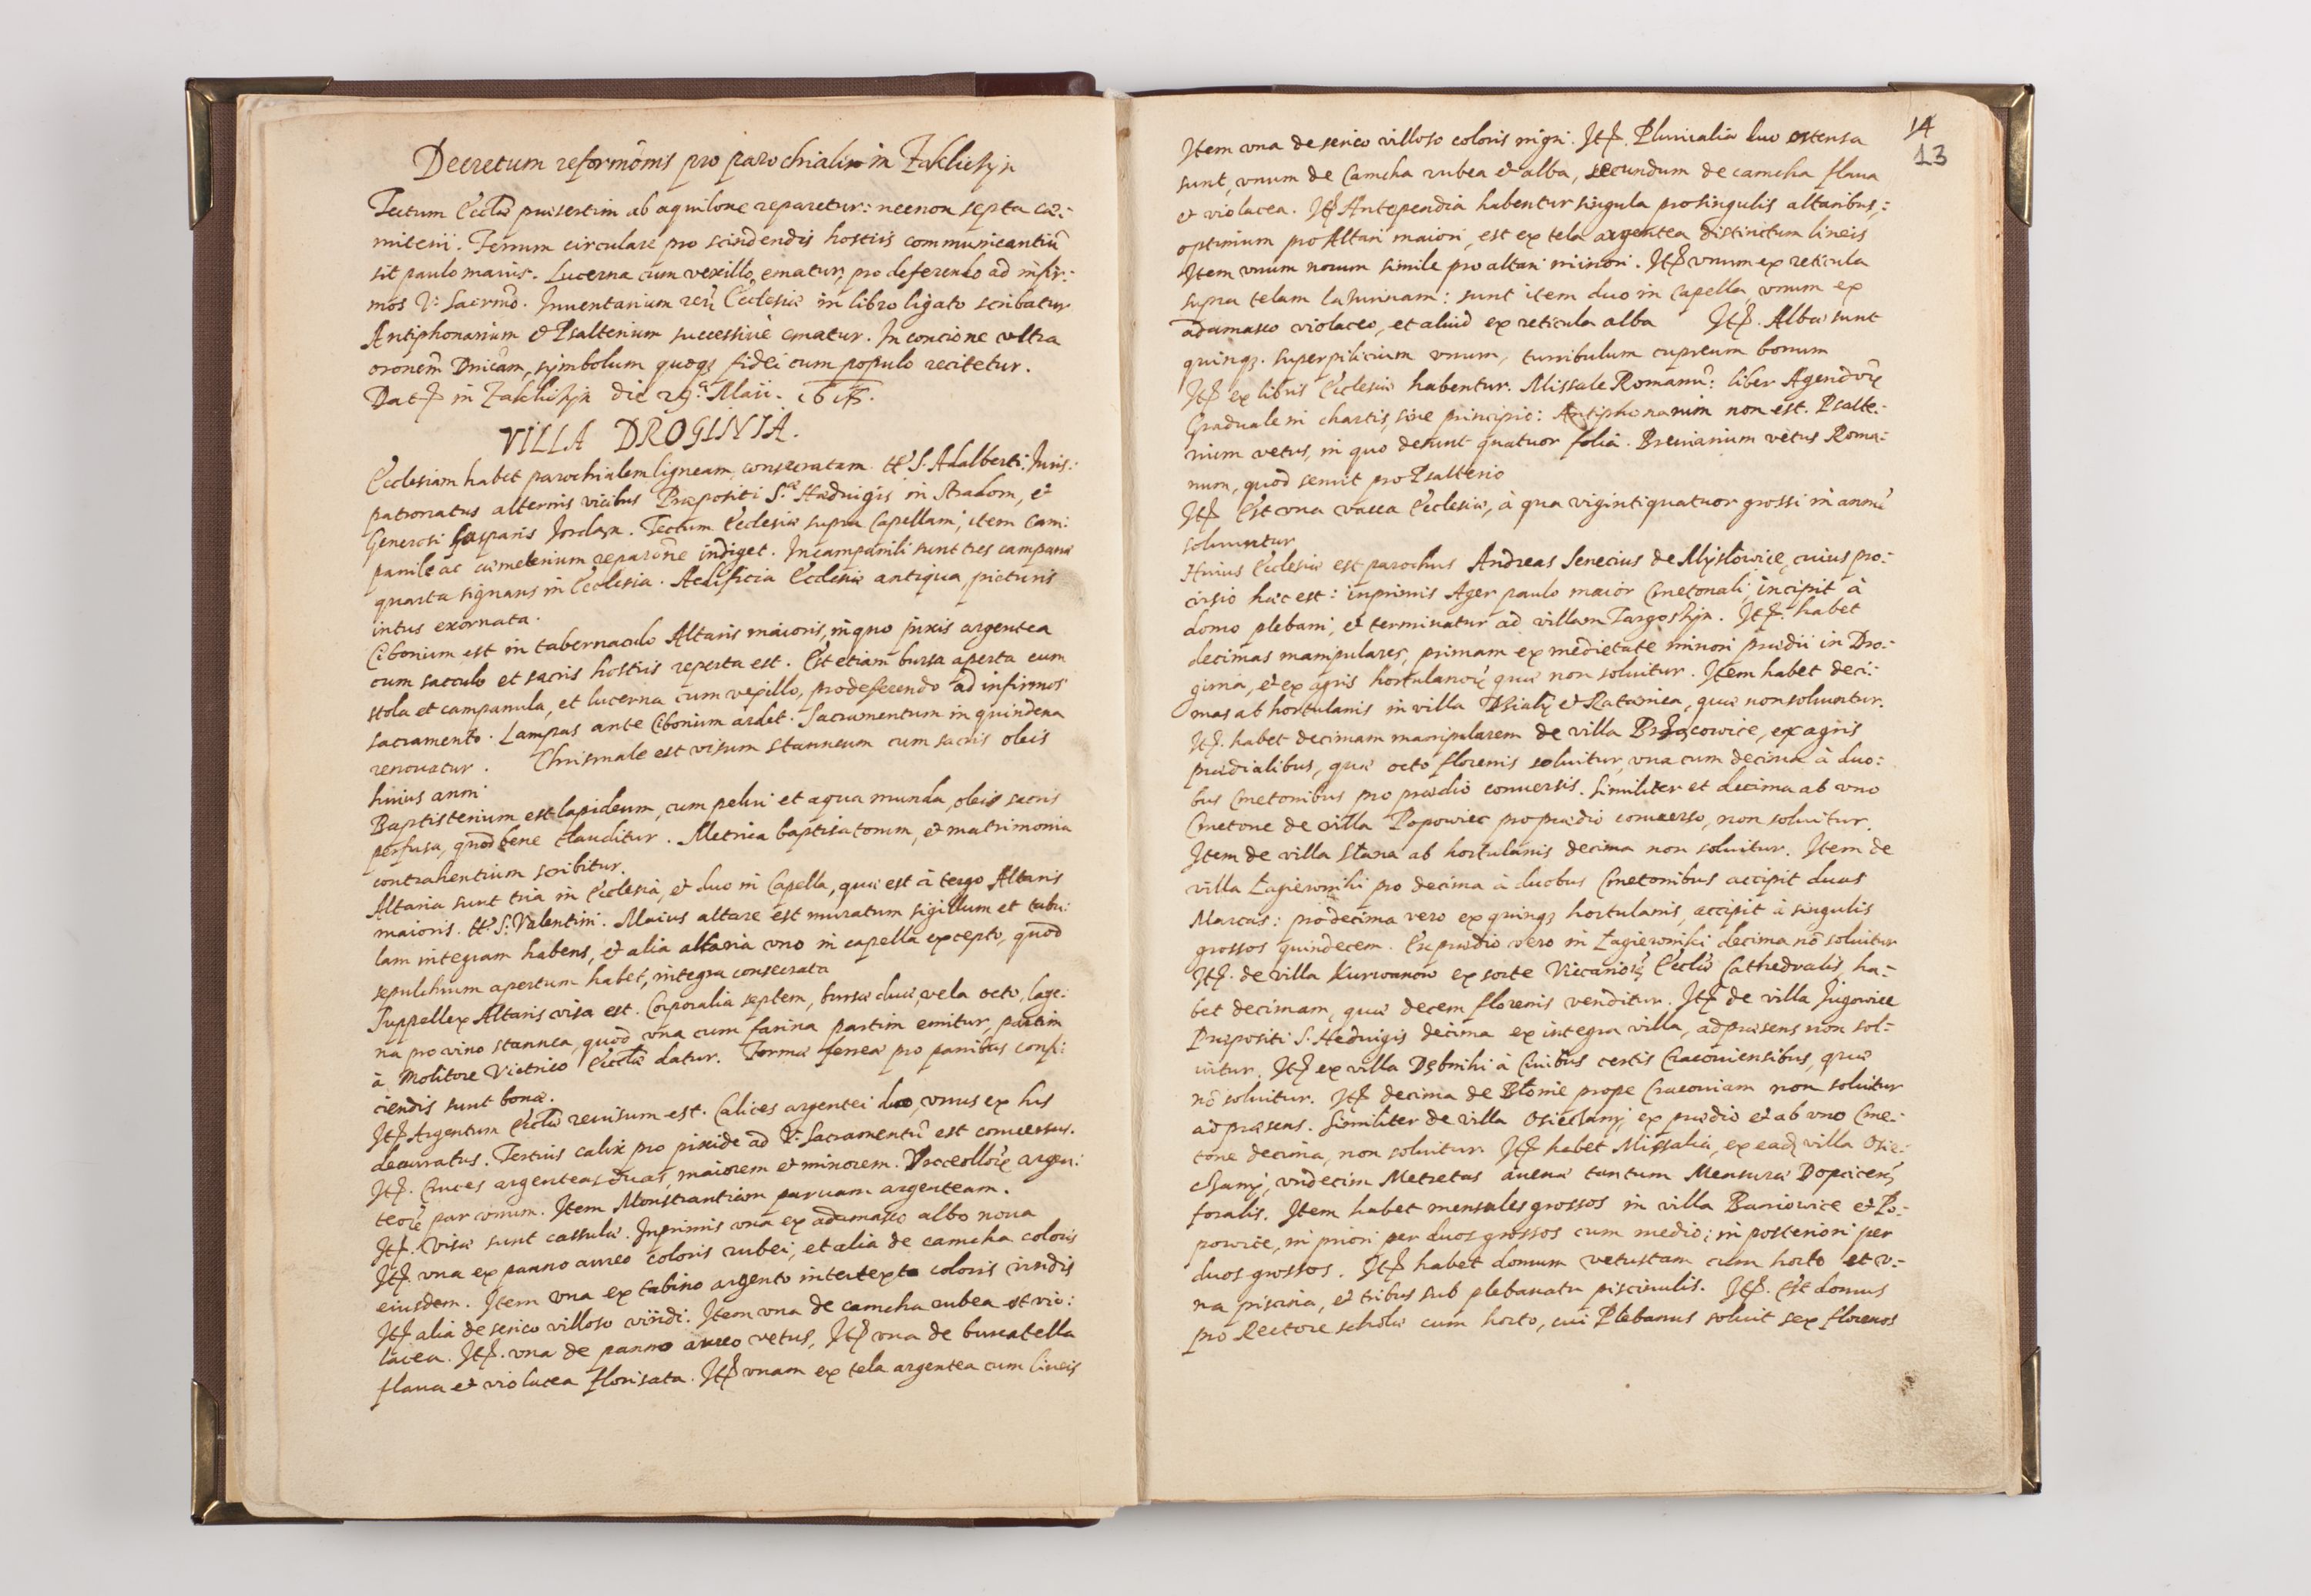 Decretum reformõnis pro parochiali in Zakliczyn
Tectum Eccłæ præsertim ab aquilone reparetur: necnon septa cæ:
miterii. Ferrum circulare pro scindendis hostiis communicantiũ
sit paulo maius. Lucerna cum vexillo ematur, pro deferendo ad infir:
mos V. Sacrmõ. Inuentarium rerũ Ecclesiæ in libro ligato scribatur
Antiphonarium et Psalterium successiuè ematur. In concione vltra
oronem̃ Dnicam̃, symbolum quoqȝ fidei cum populo recitetur.
Dat. in Zakliczyn die 29.ᵃ Maii.
VILLA DROGINIA.
Ecclesiam habet parochialem ligneam, consecratam tt. S. Adalberti. Iuris:
patronatus alternis vicibus Præpositi S.æ Hæduigis in Stradom, et
Generosi Gasparis Jordan. Tectum Ecclesiæ supra Capellam, item Cam:
panile ac cæmeterium reparõne indiget. In campanili sunt tres campanæ
quarta signans in Ecclesia. Aedificia Ecclesiæ antiqua, picturis
intus exornata.
Ciborium est in tabernaculo Altaris maioris, in quo pixis argentea
cum sacculo et sacris hostiis reperta est. Est etiam bursa aperta cum
stola et campanula, et lucerna cum vexillo, pro deferendo ad infirmos
sacramento. Lampas ante Ciborium ardet. Sacramentum in quindena
renouatur. Chrismale est visum stanneum cum sacris oleis
huius anni
Baptisterium est lapideum, cum pelui et aqua munda, oleis sacris
perfusa, quod bene clauditur. Metrica baptisatorum, et matrimonia
contrahentium scribitur.
Altaria sunt tria in Ecclesia, et duo in Capella, quæ est à tergo Altaris
maioris. tt. S. Valentini. Maius altare est muratum sigillum et tabu:
lam integram habens, et alia altaria vno in capella excepto, quod
sepulchrum apertum habet, integra consecrata
Suppellex Altaris visa est. Corporalia septem, bursæ duæ, vela octo, lage:
na pro vino stannea, quod vna cum farina partim emitur, partim
à Molitore Vietrico Eccłæ datur. Forma ferrea pro panibus confi:
ciendis sunt bonæ.
Itẽ Argentum Eccłæ reuisum est. Calices argentei duo, vnus ex his
deauratus. Tertius calix pro pixide ad V. Sacramentũ est conuersus.
Itẽ. Cruces argenteas duas, maiorem et minorem. Vrceollorũ argen:
teorũ par vnum. Item Monstrantiam paruam argenteam.
Itẽ. Visæ sunt cassulæ. Inprimis vna ex adamasco albo noua
Itẽ. vna ex panno aureo coloris rubei, et alia de camcha coloris
eiusdem. Item vna ex tabino argento intertexto coloris viridis
Itẽ alia de serico villoso viridi. Item vna de camcha rubea et vio:
lacea. Itẽ. vna de panno aureo vetus, Itẽ vna de burcatella
flaua et violacea florisata. Itẽ vnam ex tela argentea cum lineis
14
13
Item vna de serico villoso coloris nigri. Itẽ. Pluuialia duo ostensa
sunt, vnum de Camcha rubea et alba, secundum de camcha flaua
et violacea. Itẽ Antependia habentur singula pro singulis altaribus,:
optimum pro Altari maiori, est ex tela argentea distinctum lineis
Item vnum nouum simile pro altari minori. Itẽ vnum ex reticula
supra telam lazurinam: sunt item duo in Capella, vnum ex
adamasco violaceo, et aliud ex reticula alba Itẽ. Albæ sunt
quinqȝ. superpilicium vnum, turribulum cupreum bonum
Itẽ ex libris Ecclesiæ habentur. Missale Romanũ: liber Agendorũ
Graduale in chartis, sine principio: Antiphonarium non est. Psalte:
rium vetus, in quo desunt quatuor folia. Breuiarium vetus Roma:
num, quod seruit pro Psalterio
Itẽ Est vna vacca Ecclesiæ, à qua viginti quatuor grossi in annũ
soluuntur
Huius Ecclesiæ est parochus Andreas Senecius de Mysłowice, cuius pro:
visio hæc est: inprimis Ager paulo maior Cmetonali, incipit à
domo plebani, et terminatur ad villam Targoszyn. Itẽ. habet
decimas manipulares, primam ex medietate minori prædii in Dro:
ginia, et ex agris hortulanorũ quæ non soluitur. Item habet deci:
mas ab hortulanis in villa et quæ non soluuntur.
Itẽ. habet decimam manipularem de villa ex agris
prædialibus, quæ octo florenis soluitur, vna cum decima à duo:
bus Cmetonibus pro prædio conuersis. Similiter et decima ab vno
Cmetone de villa Popowiec pro prædio conuerso, non soluitur.
Item de villa Stara ab hortulanis decima non soluitur. Item de
villa Łagiewniki pro decima à duobus Cmetonibus accipit duas
Marcas: pro decima vero ex quinqȝ hortulanis, accipit à singulis
grossos quindecem. Ex prædio vero in Łagiewniki decima nõ soluitur
Itẽ. de villa Kurwanow ex sorte Vicariorũ Eccłæ Cathedralis, ha:
bet decimam, quæ decem florenis venditur. Itẽ de villa Jugowice
Præpositi S. Heduigis decima ex integra villa, ad præsens non sol:
uitur. Itẽ ex villa Dębniki à Ciuibus certis Cracouiensibus, quæ
nõ soluitur. Itẽ decima de Błonie prope Cracouiam non soluitur
ad præsens. Similiter de villa Osieczany ex prædio et ab vno Cme:
tone decima, non soluitur. Itẽ habet Missalia, ex eadẽ villa Osie:
czany, vndecim Metretas auenæ tantum Mensuræ Dopcicen̄
foralis. Item habet mensales grossos in villa Banowice et Po:
powice, in priori per duos grossos cum medio; in posteriori per
duos grossos. Itẽ habet domum vetustam cum horto et v:
na piscina, et tribus sub plebanatu pisciculis. Itẽ. Est domus
pro Rectore scholæ cum horto, cui Plebanus soluit sex florenos